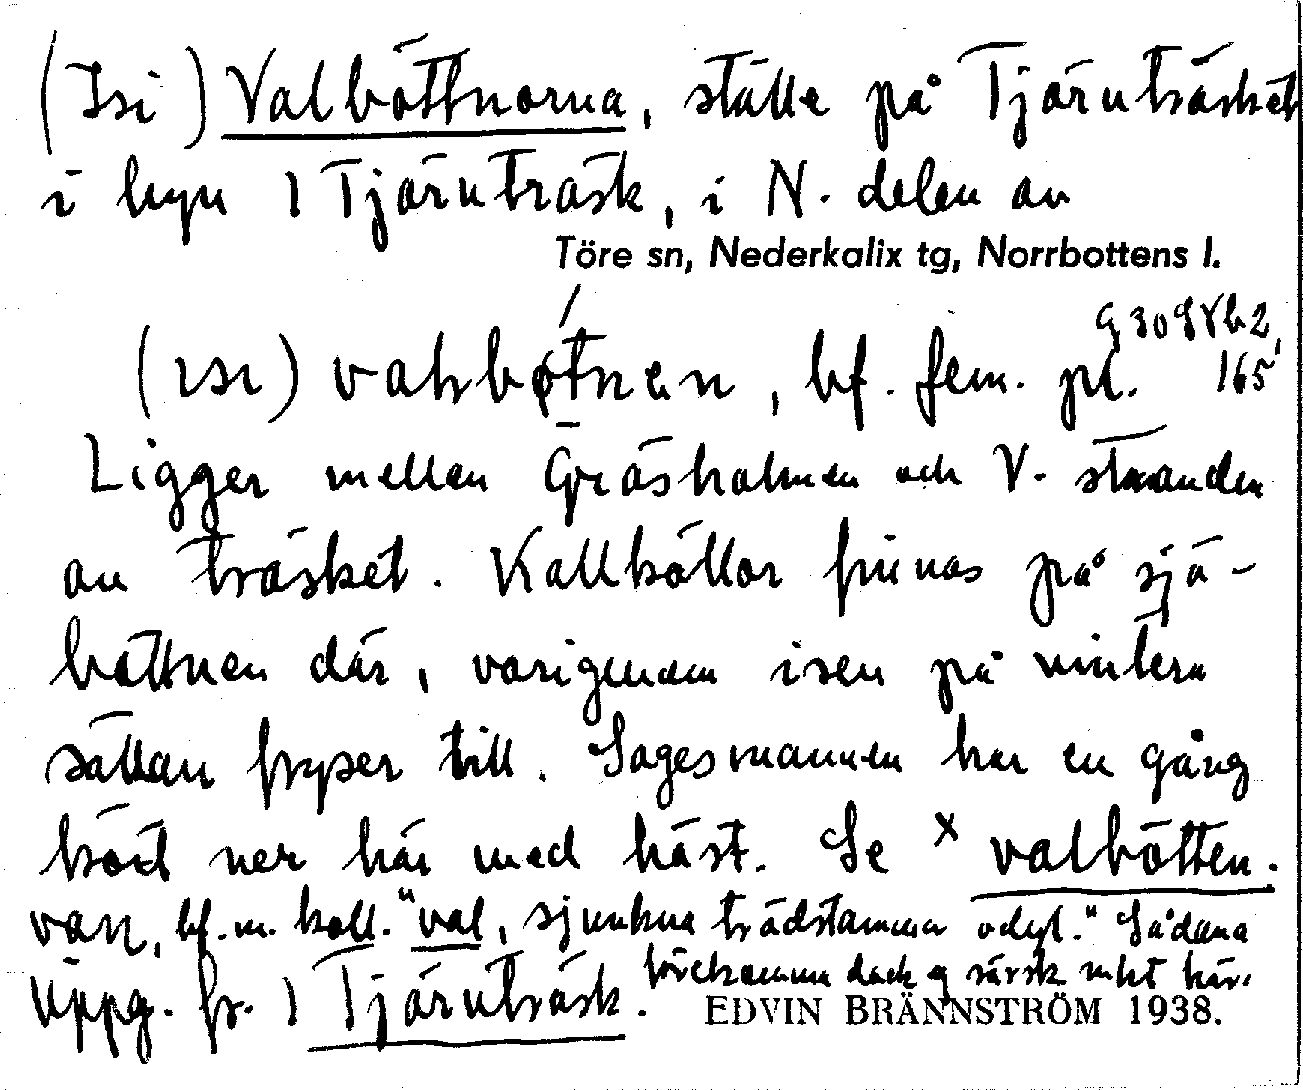 (Isi) Valböttnorna, ställe på Tjärnträsket
i byn 1 Tjärnträsk, i N. delen av
Töre sn, Nederkalix tg, Norrbottens l.
G 3098 b2,
165
(ısı) , bf. fem. pl.
Ligger mellan Gräsholmen och V. stranden
av träsket. Kallkällor finnas på sjö-
bottnen där, varigenom isen på vintern
sällan fryser till. Sagesmannen har en gång
kört ner här med häst. Se x valbötten.
van, bf. m. koll. "val, sjunkna trädstammar odyl." Sådana
förekomma dock ej särsk. mkt här.
Uppg. fr. 1 Tjärnträsk.
EDVIN BRÄNNSTRÖM 1938.